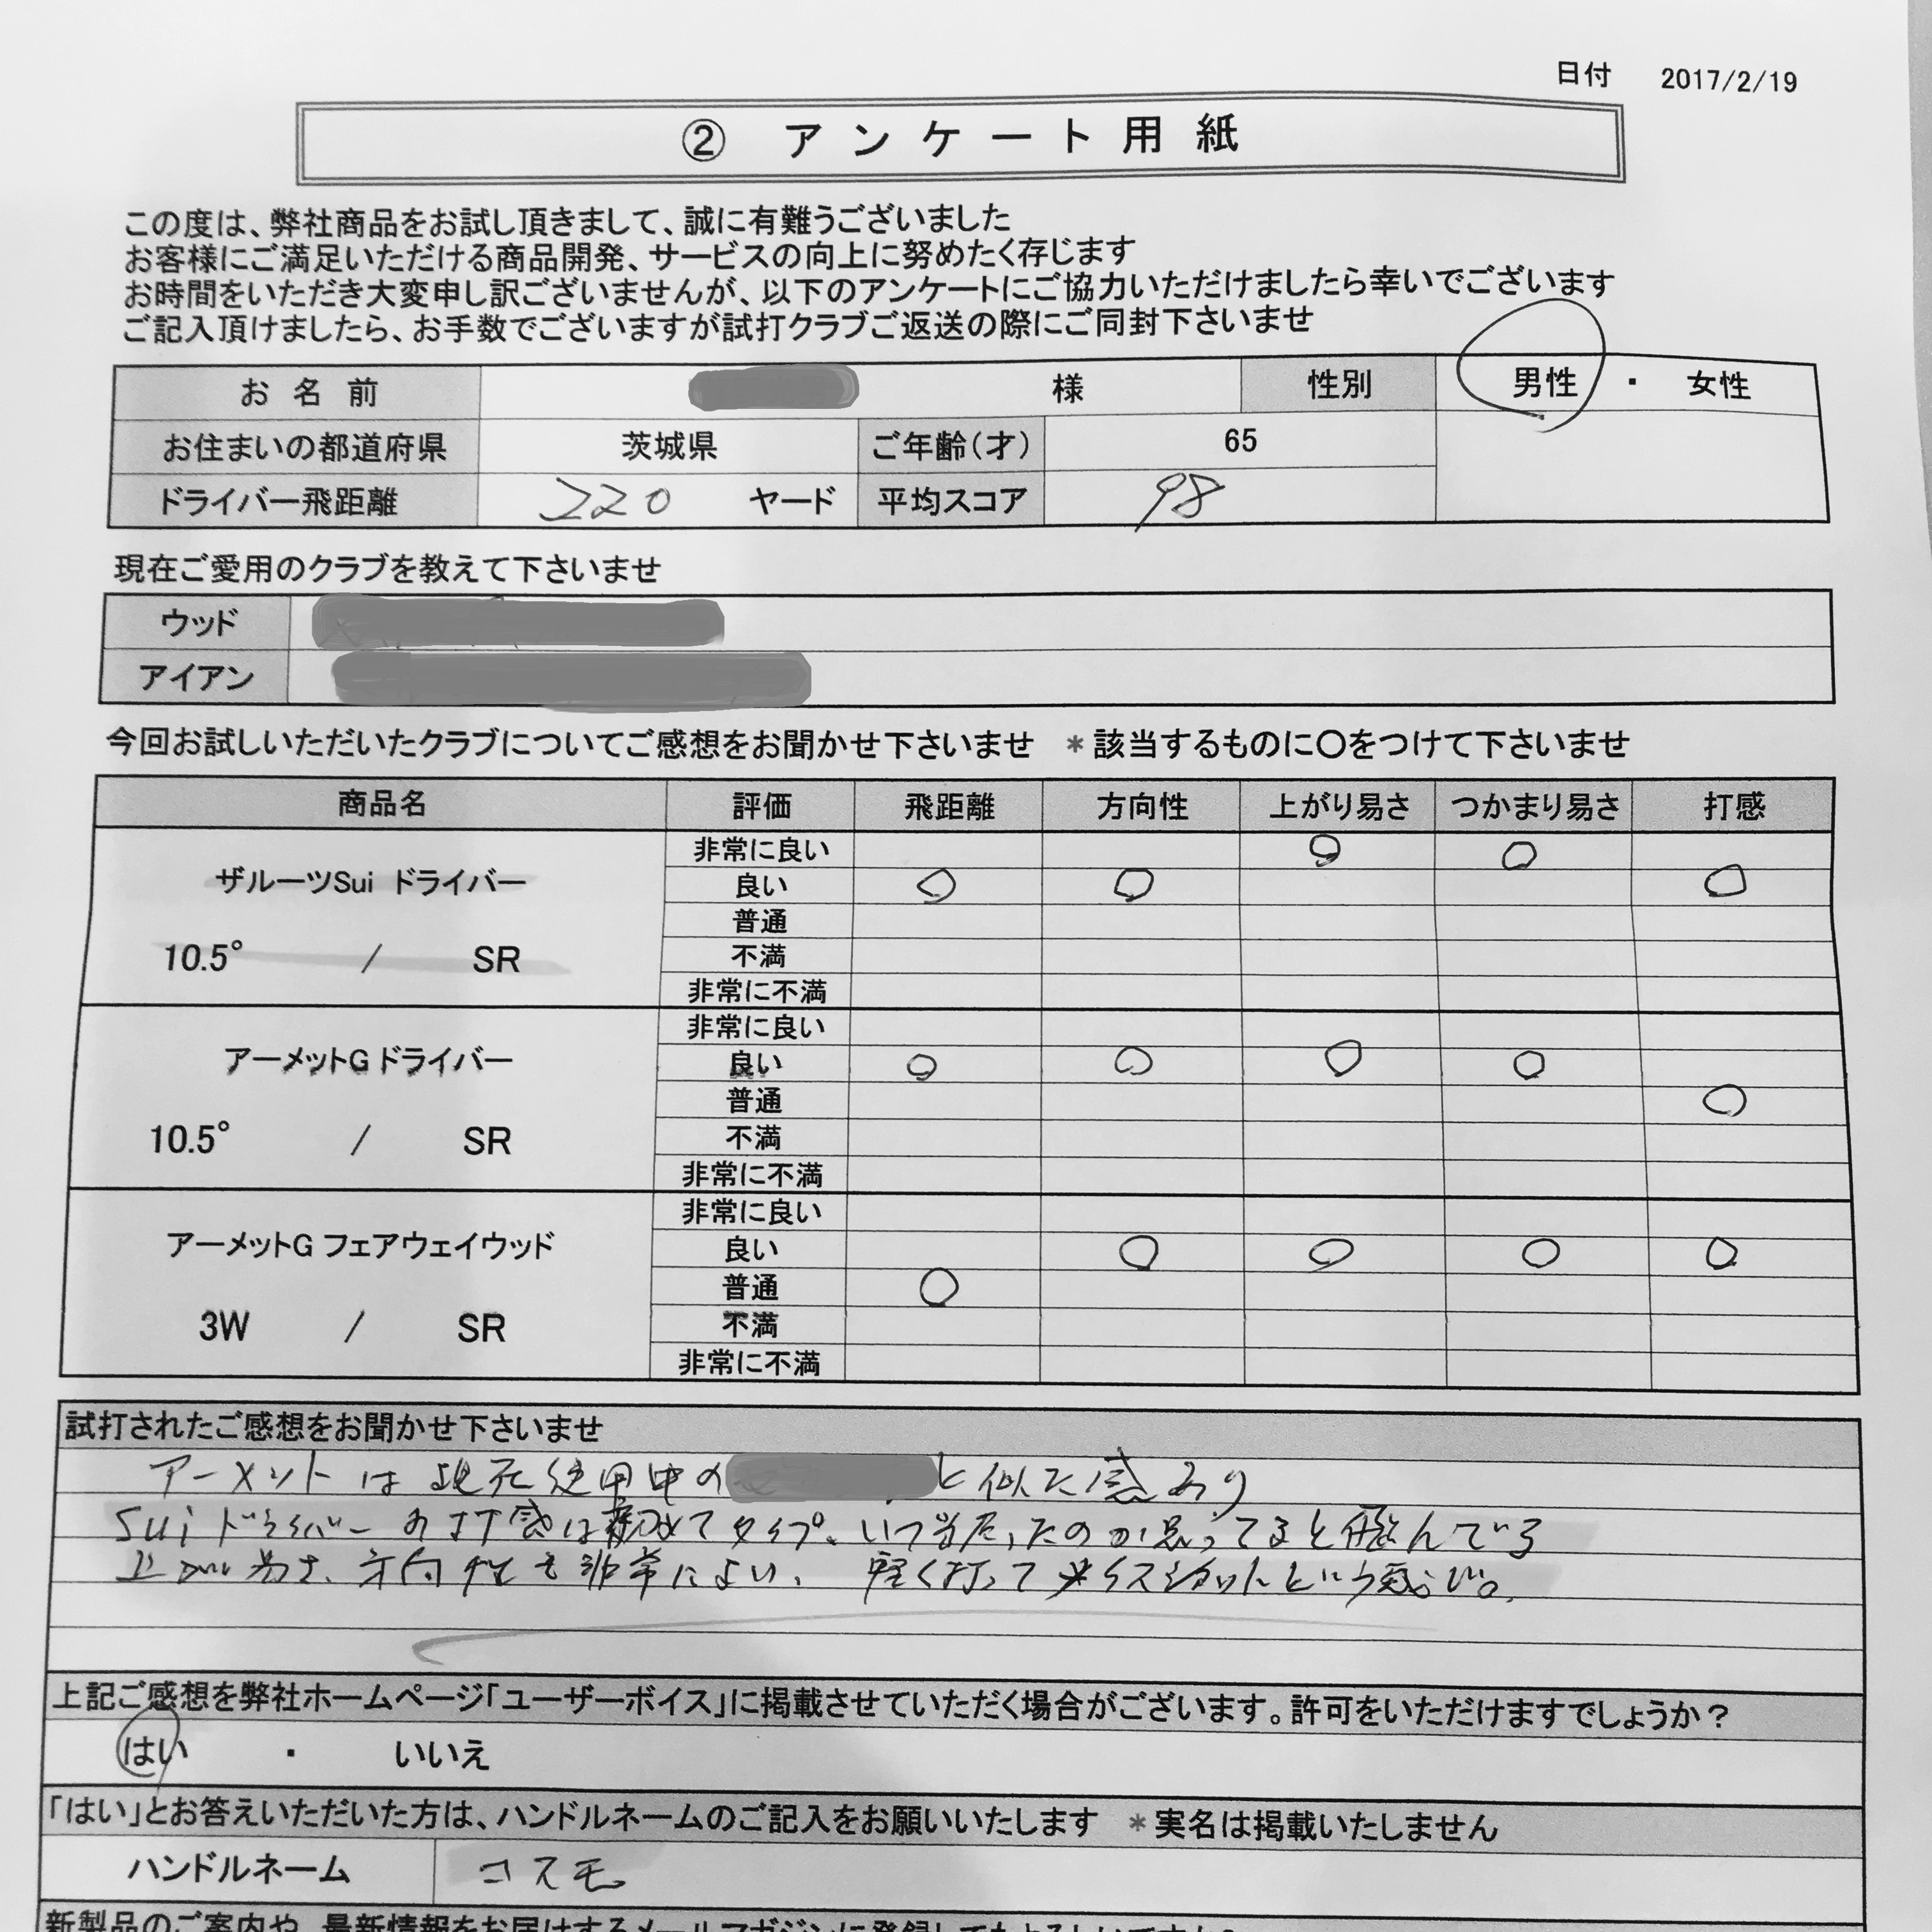 日付 2017/2/19
② アンケート用紙
この度は、弊社商品をお試し頂きまして、誠に有難うございました
お客様にご満足いただける商品開発、サービスの向上に努めたく存じます
お時間をいただき大変申し訳ございませんが、以下のアンケートにご協力いただけましたら幸いでございます
ご記入頂けましたら、お手数でございますが試打クラブご返送の際にご同封下さいませ
お名前 様 性別 男性 ・ 女性
お住まいの都道府県 茨城県 ご年齢(才) 65
ドライバー飛距離 220 ヤード 平均スコア 98
現在ご愛用のクラブを教えて下さいませ
ウッド
アイアン
今回お試しいただいたクラブについてご感想をお聞かせ下さいませ *該当するものに〇をつけて下さいませ
商品名 評価 飛距離 方向性 上がり易さ つかまり易さ 打感
ザルーツSui ドライバー
10.5° / SR
非常に良い 〇 〇
良い 〇 〇 〇
普通
不満
非常に不満
アーメットG ドライバー
10.5° / SR
非常に良い
良い 〇 〇 〇 〇
普通 〇
不満
非常に不満
アーメットG フェアウェイウッド
3W / SR
非常に良い
良い 〇 〇 〇 〇
普通 〇
不満
非常に不満
試打されたご感想をお聞かせ下さいませ
アーメットは現在使用中の と似た感あり
Suiドライバーの打感は初めてタイプ、いつ当たったのか思ってると飛んでいる
上がり易さ、方向性も非常によい、軽く打ってナイスショットという感じ。
上記ご感想を弊社ホームページ「ユーザーボイス」に掲載させていただく場合がございます。許可をいただけますでしょうか？
はい ・ いいえ
「はい」とお答えいただいた方は、ハンドルネームのご記入をお願いいたします *実名は掲載いたしません
ハンドルネーム コスモ
新製品のご案内や、最新情報をお届けするメールマガジンに登録してもよろしいですか？